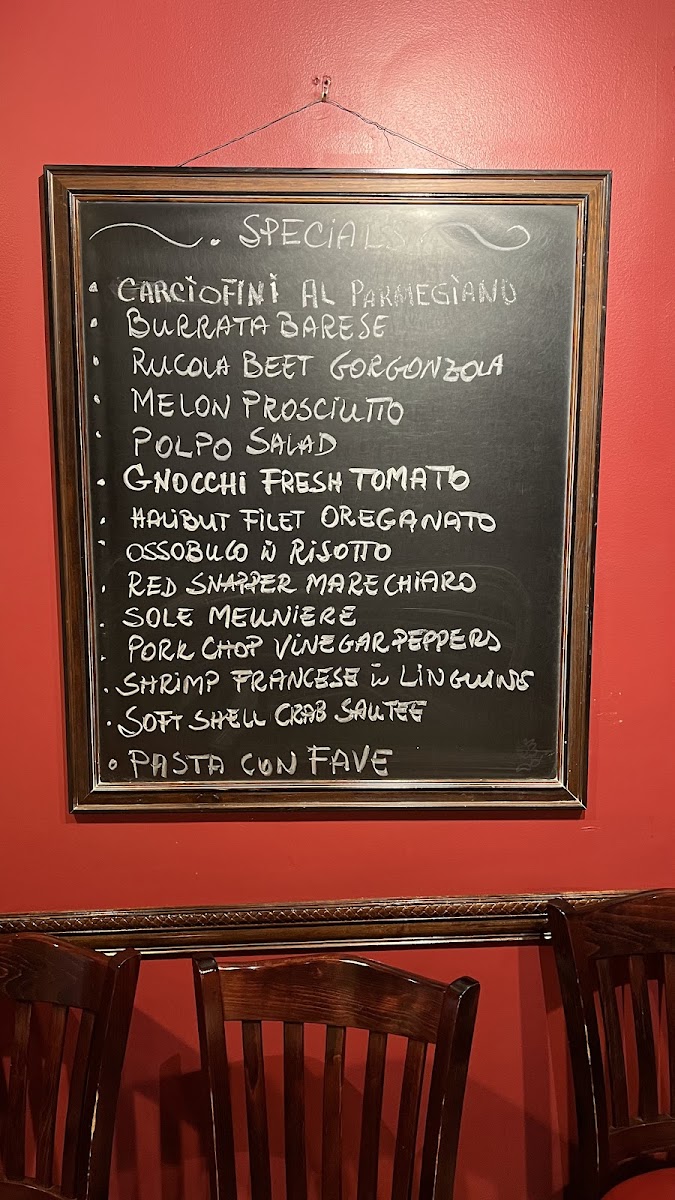 . SPECIALS
• CARCIOFINI AL PARMEGIANO
• BURRATA BARESE
• RUCOLA BEET GORGONZOLA
• MELON PROSCIUTTO
• POLPO SALAD
• GNOCCHI FRESH TOMATO
• HALIBUT FILET OREGANATO
• OSSOBUCO in RISOTTO
• RED SNAPPER MARECHIARO
• SOLE MEUNIERE
• PORK CHOP VINEGAR PEPPERS
• SHRIMP FRANCESE in LINGUINE
• SOFT SHELL CRAB SAUTEE
• PASTA CON FAVE